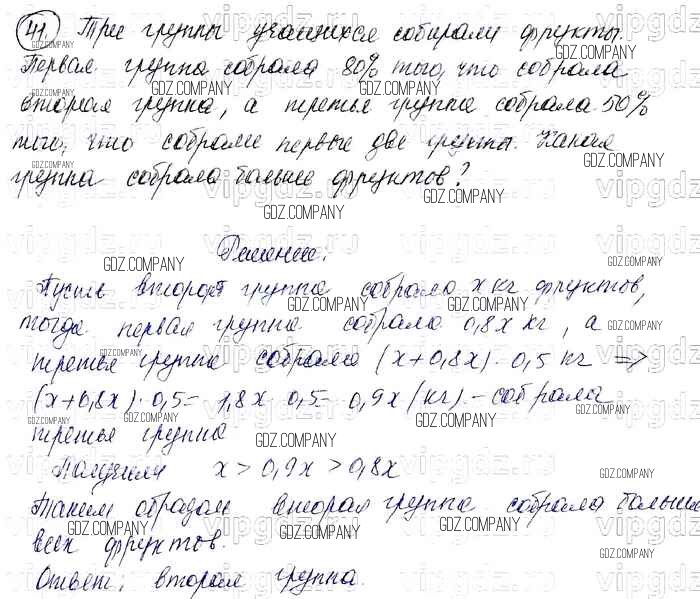 41. Три группы учащихся собирали фрукты.
Первая группа собрала 80% того, что собрала
вторая группа, а третья группа собрала 50%
того, что собрали первые две группы. Какая
группа собрала больше фруктов?
Решение.
Пусть вторая группа собрала x кг фруктов,
тогда первая группа собрала 0,8x кг, а
третья группа собрала (x+0,8x)·0,5 кг =>
(x+0,8x)·0,5= 1,8x·0,5= 0,9x (кг) - собрала
третья группа
Получили x > 0,9x > 0,8x
Таким образом вторая группа собрала больше
всех фруктов.
Ответ: вторая группа.
GDZ.COMPANY
vipgdz.ru